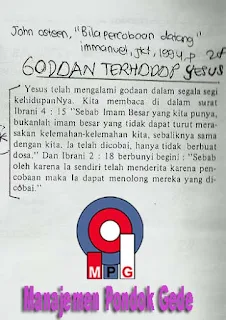 John osteen, "Bila percobaan datang"
immanuel, jkt, 1994, p.
GODDAN TERHODOP YESUS
Yesus telah mengalami godaan dalam segala segi
kehidupanNya. Kita membaca di dalam surat
Ibrani 4 : 15 "Sebab Imam Besar yang kita punya,
bukanlah imam besar yang tidak dapat turut mera-
sakan kelemahan-kelemahan kita, sebaliknya sama
dengan kita, Ia telah dicobai, hanya tidak berbuat
dosa." Dan Ibrani 2 : 18 berbunyi begini : "Sebab
oleh karena Ia sendiri telah menderita karena pen-
cobaan maka Ia dapat menolong mereka yang di-
cobai."
MPG
Manajemen Pondok Gede